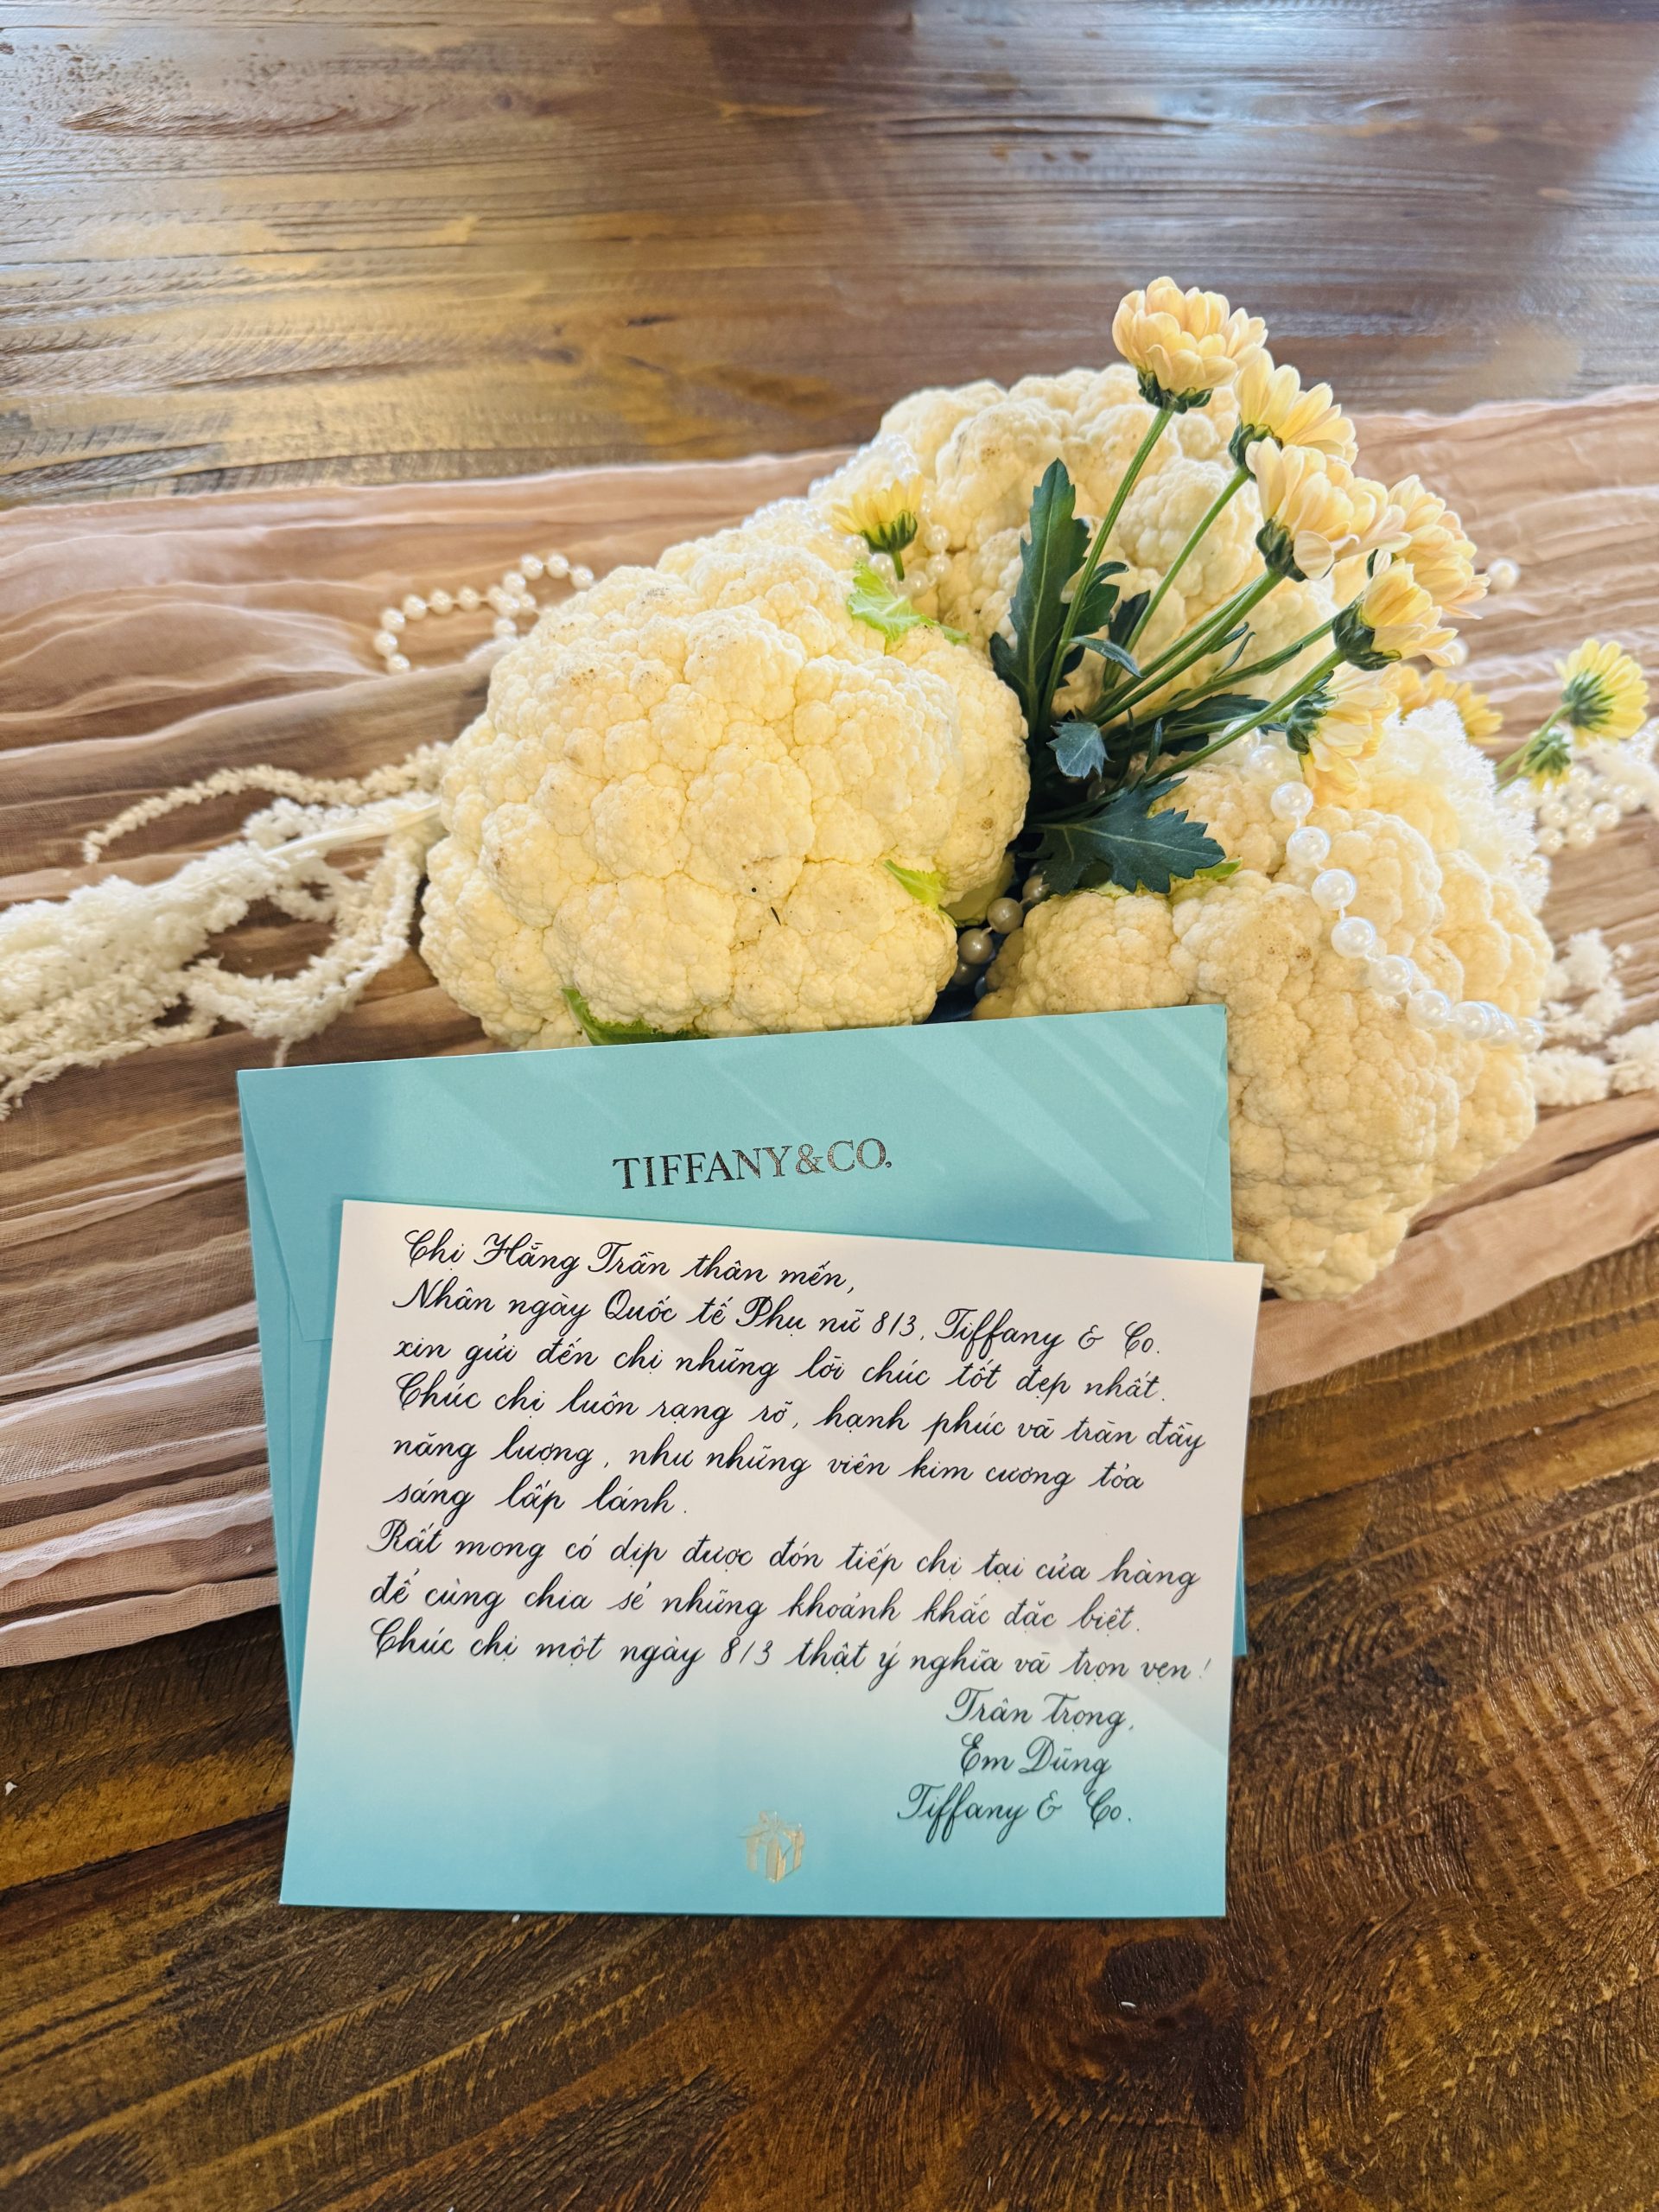 TIFFANY & CO.
Chị Hằng Trần thân mến,
Nhân ngày Quốc tế Phụ nữ 8/3, Tiffany & Co.
xin gửi đến chị những lời chúc tốt đẹp nhất.
Chúc chị luôn rạng rỡ, hạnh phúc và tràn đầy
năng lượng, như những viên kim cương tỏa
sáng lấp lánh.
Rất mong có dịp được đón tiếp chị tại cửa hàng
để cùng chia sẻ những khoảnh khắc đặc biệt.
Chúc chị một ngày 8/3 thật ý nghĩa và trọn vẹn!
Trân Trọng,
Em Dũng
Tiffany & Co.